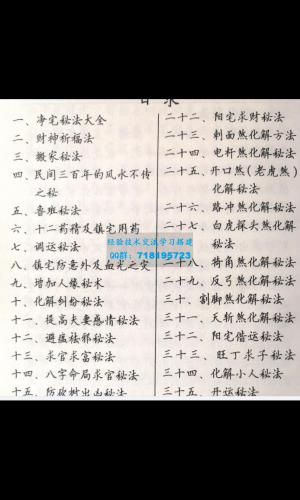 目录
一、净宅秘法大全
二、财神祈福法
三、搬家秘法
四、民间三百年的风水不传
之秘
五、鲁班秘法
六、十二药精及镇宅用药
七、调运秘法
八、镇宅防意外及血光之灾
九、增加人缘秘术
十、化解纠纷秘法
十一、提高夫妻感情秘法
十二、避瘟祛邪秘法
十三、求官求富秘法
十四、八字命局求官秘法
十五、防砍树出凶秘法
二十二、阳宅求财秘法
二十三、刺面煞化解方法
二十四、电杆煞化解秘法
二十五、开口煞(老虎煞)
化解秘法
二十六、路冲煞化解秘法
二十七、白虎探头煞化解
秘法
二十八、犄角煞化解秘法
二十九、反弓煞化解秘法
三十、割脚煞化解秘法
三十一、天斩煞化解秘法
三十二、阳宅借运秘法
三十三、旺丁求子秘法
三十四、化解小人秘法
三十五、开运秘法
经验技术交流学习搭建
QQ群：718195723